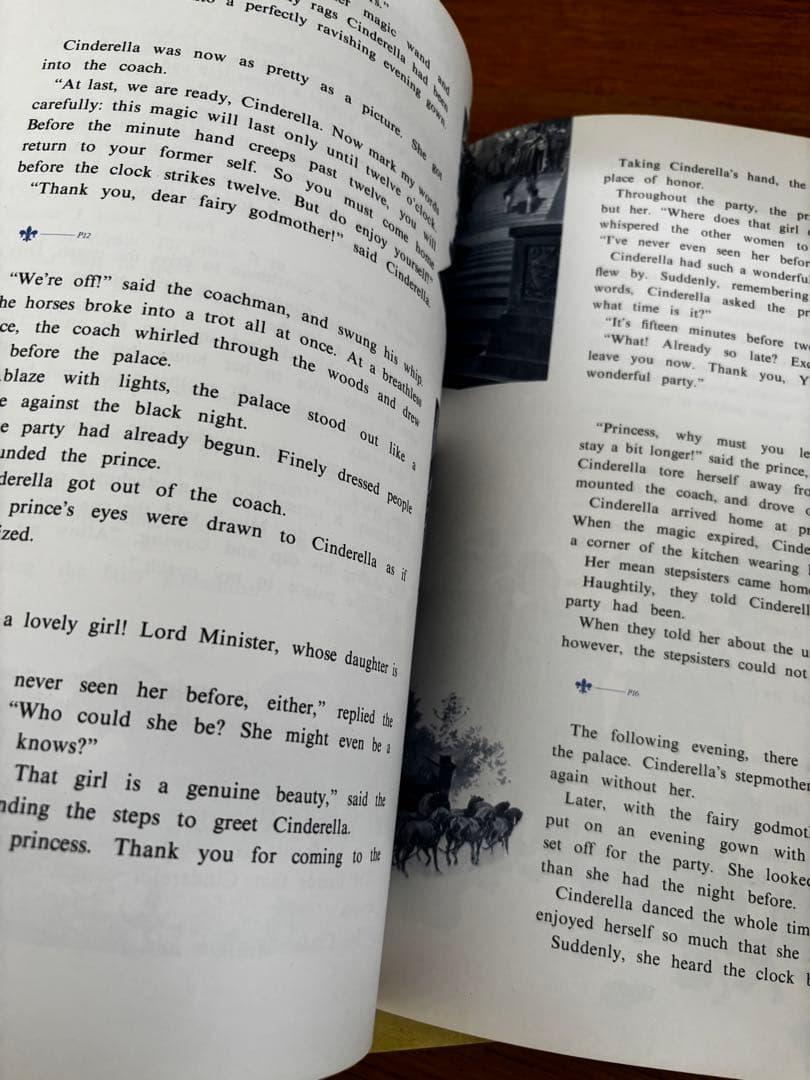 magic wand and
rags Cinderella had been
a perfectly ravishing evening gown
Cinderella was now as pretty as a picture. She got
into the coach.
“At last, we are ready, Cinderella. Now mark my words
carefully: this magic will last only until twelve o'clock.
Before the minute hand creeps past twelve, you will
return to your former self. So you must come home
before the clock strikes twelve. But do enjoy yourself!”
“Thank you, dear fairy godmother!” said Cinderella.
P12
“We're off!” said the coachman, and swung his whip.
he horses broke into a trot all at once. At a breathless
ce, the coach whirled through the woods and drew
before the palace.
blaze with lights, the palace stood out like a
e against the black night.
e party had already begun. Finely dressed people
unded the prince.
derella got out of the coach.
prince's eyes were drawn to Cinderella as if
ized.
a lovely girl! Lord Minister, whose daughter is
never seen her before, either,” replied the
“Who could she be? She might even be a
knows?”
That girl is a genuine beauty,” said the
nding the steps to greet Cinderella.
princess. Thank you for coming to the
Taking Cinderella's hand, the
place of honor.
Throughout the party, the pr
but her. “Where does that girl
whispered the other women to
“I've never even seen her befor
Cinderella had such a wonderful
flew by. Suddenly, remembering
words, Cinderella asked the pr
what time is it?”
“It's fifteen minutes before twe
“What! Already so late? Exc
leave you now. Thank you, Y
wonderful party.”
“Princess, why must you le
stay a bit longer!” said the prince,
Cinderella tore herself away fro
mounted the coach, and drove o
Cinderella arrived home at pr
When the magic expired, Cinde
a corner of the kitchen wearing
Her mean stepsisters came hom
Haughtily, they told Cinderell
party had been.
When they told her about the u
however, the stepsisters could not
P16
The following evening, there
the palace. Cinderella's stepmother
again without her.
Later, with the fairy godmot
put on an evening gown with
set off for the party. She looked
than she had the night before.
Cinderella danced the whole tim
enjoyed herself so much that she
Suddenly, she heard the clock b